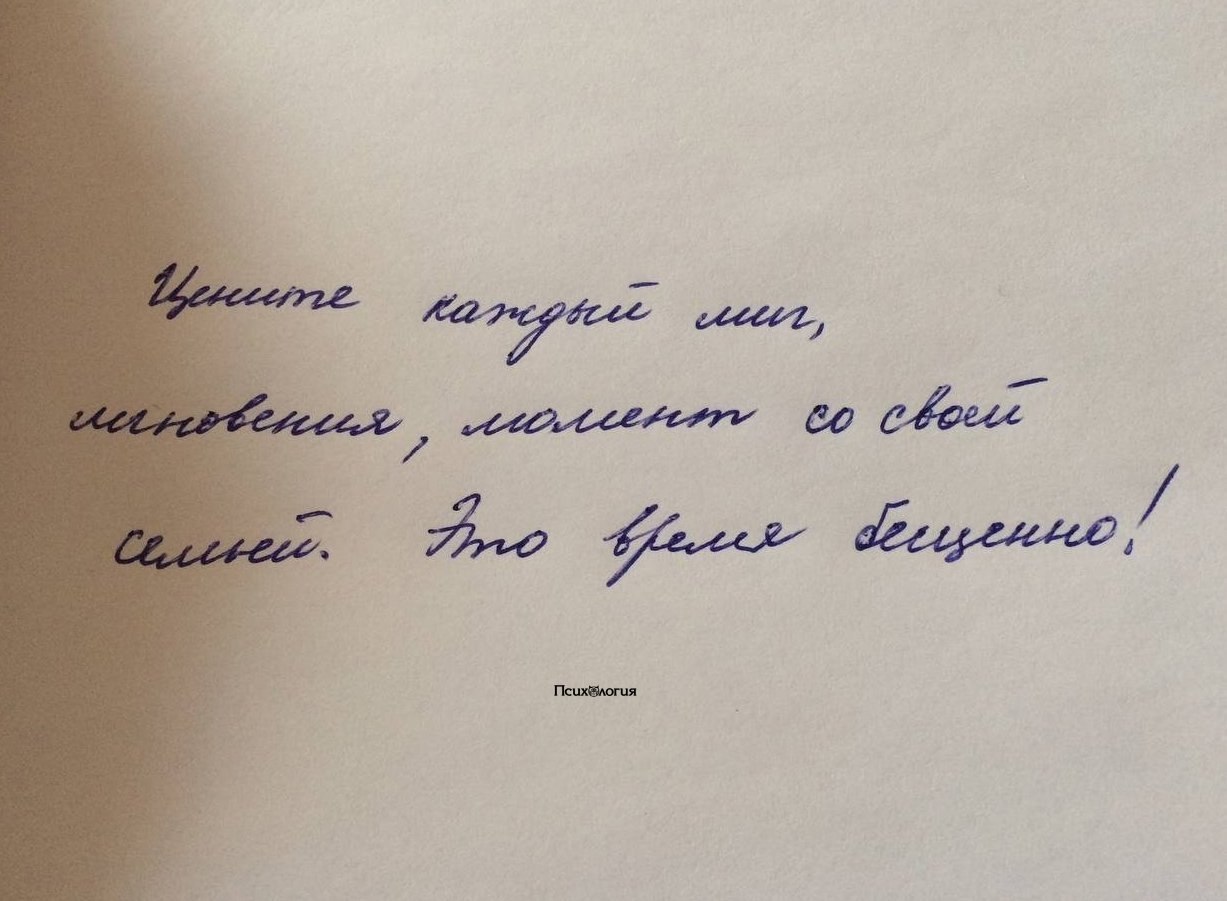 Цените каждый миг,
мгновения, момент со своей
семьей. Это время бесценно!
Психология